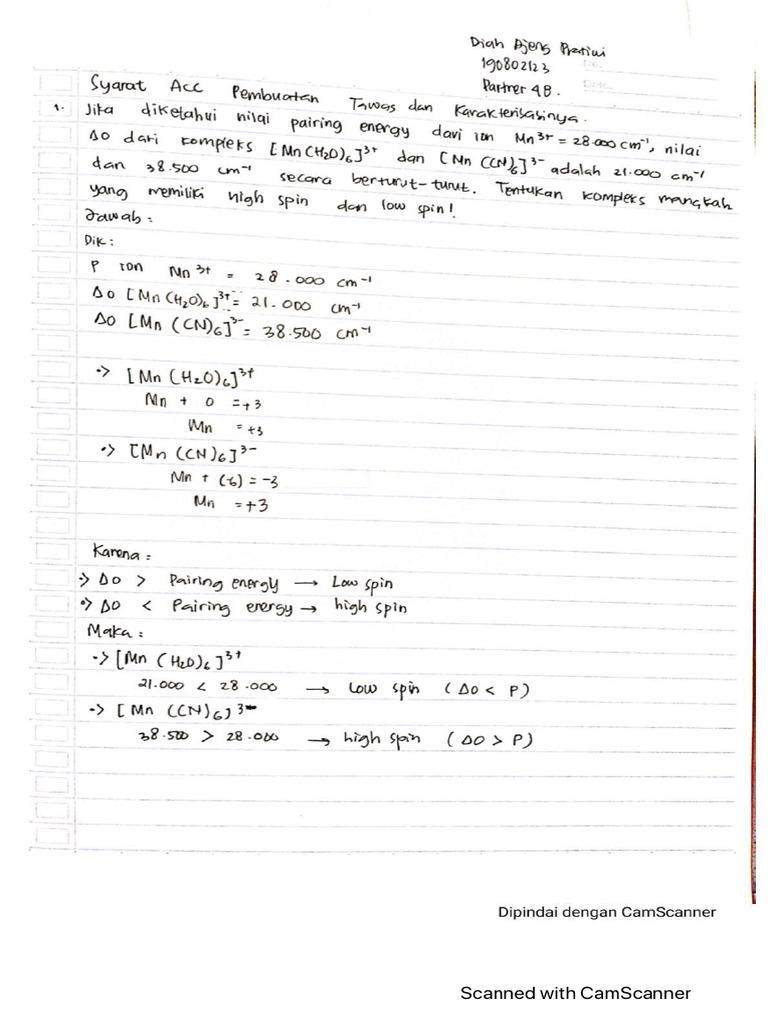 Diah Ajeng Pratiwi
190802123
No.
Partner 4B.
Date.
Syarat Acc Pembuatan Tawas dan Karakterisasinya.
1. Jika diketahui nilai pairing energy dari ion Mn³⁺ = 28.000 cm⁻¹, nilai
Δo dari kompleks [Mn(H₂O)₆]³⁺ dan [Mn (CN)₆]³⁻ adalah 21.000 cm⁻¹
dan 38.500 cm⁻¹ secara berturut-turut. Tentukan kompleks mangkah
yang memiliki high spin dan low spin!
Jawab:
Dik:
P ion Mn³⁺ = 28.000 cm⁻¹
Δo [Mn(H₂O)₆]³⁺ = 21.000 cm⁻¹
Δo [Mn (CN)₆]³⁻ = 38.500 cm⁻¹
•> [Mn (H₂O)₆]³⁺
Mn + 0 = +3
Mn = +3
•> [Mn (CN)₆]³⁻
Mn + (-6) = -3
Mn = +3
Karena:
•> Δo > Pairing energy → Low spin
•> Δo < Pairing energy → high spin
Maka:
•> [Mn (H₂O)₆]³⁺
21.000 < 28.000 → low spin (Δo < P)
•> [Mn (CN)₆]³⁻
38.500 > 28.000 → high spin (Δo > P)
Dipindai dengan CamScanner
Scanned with CamScanner